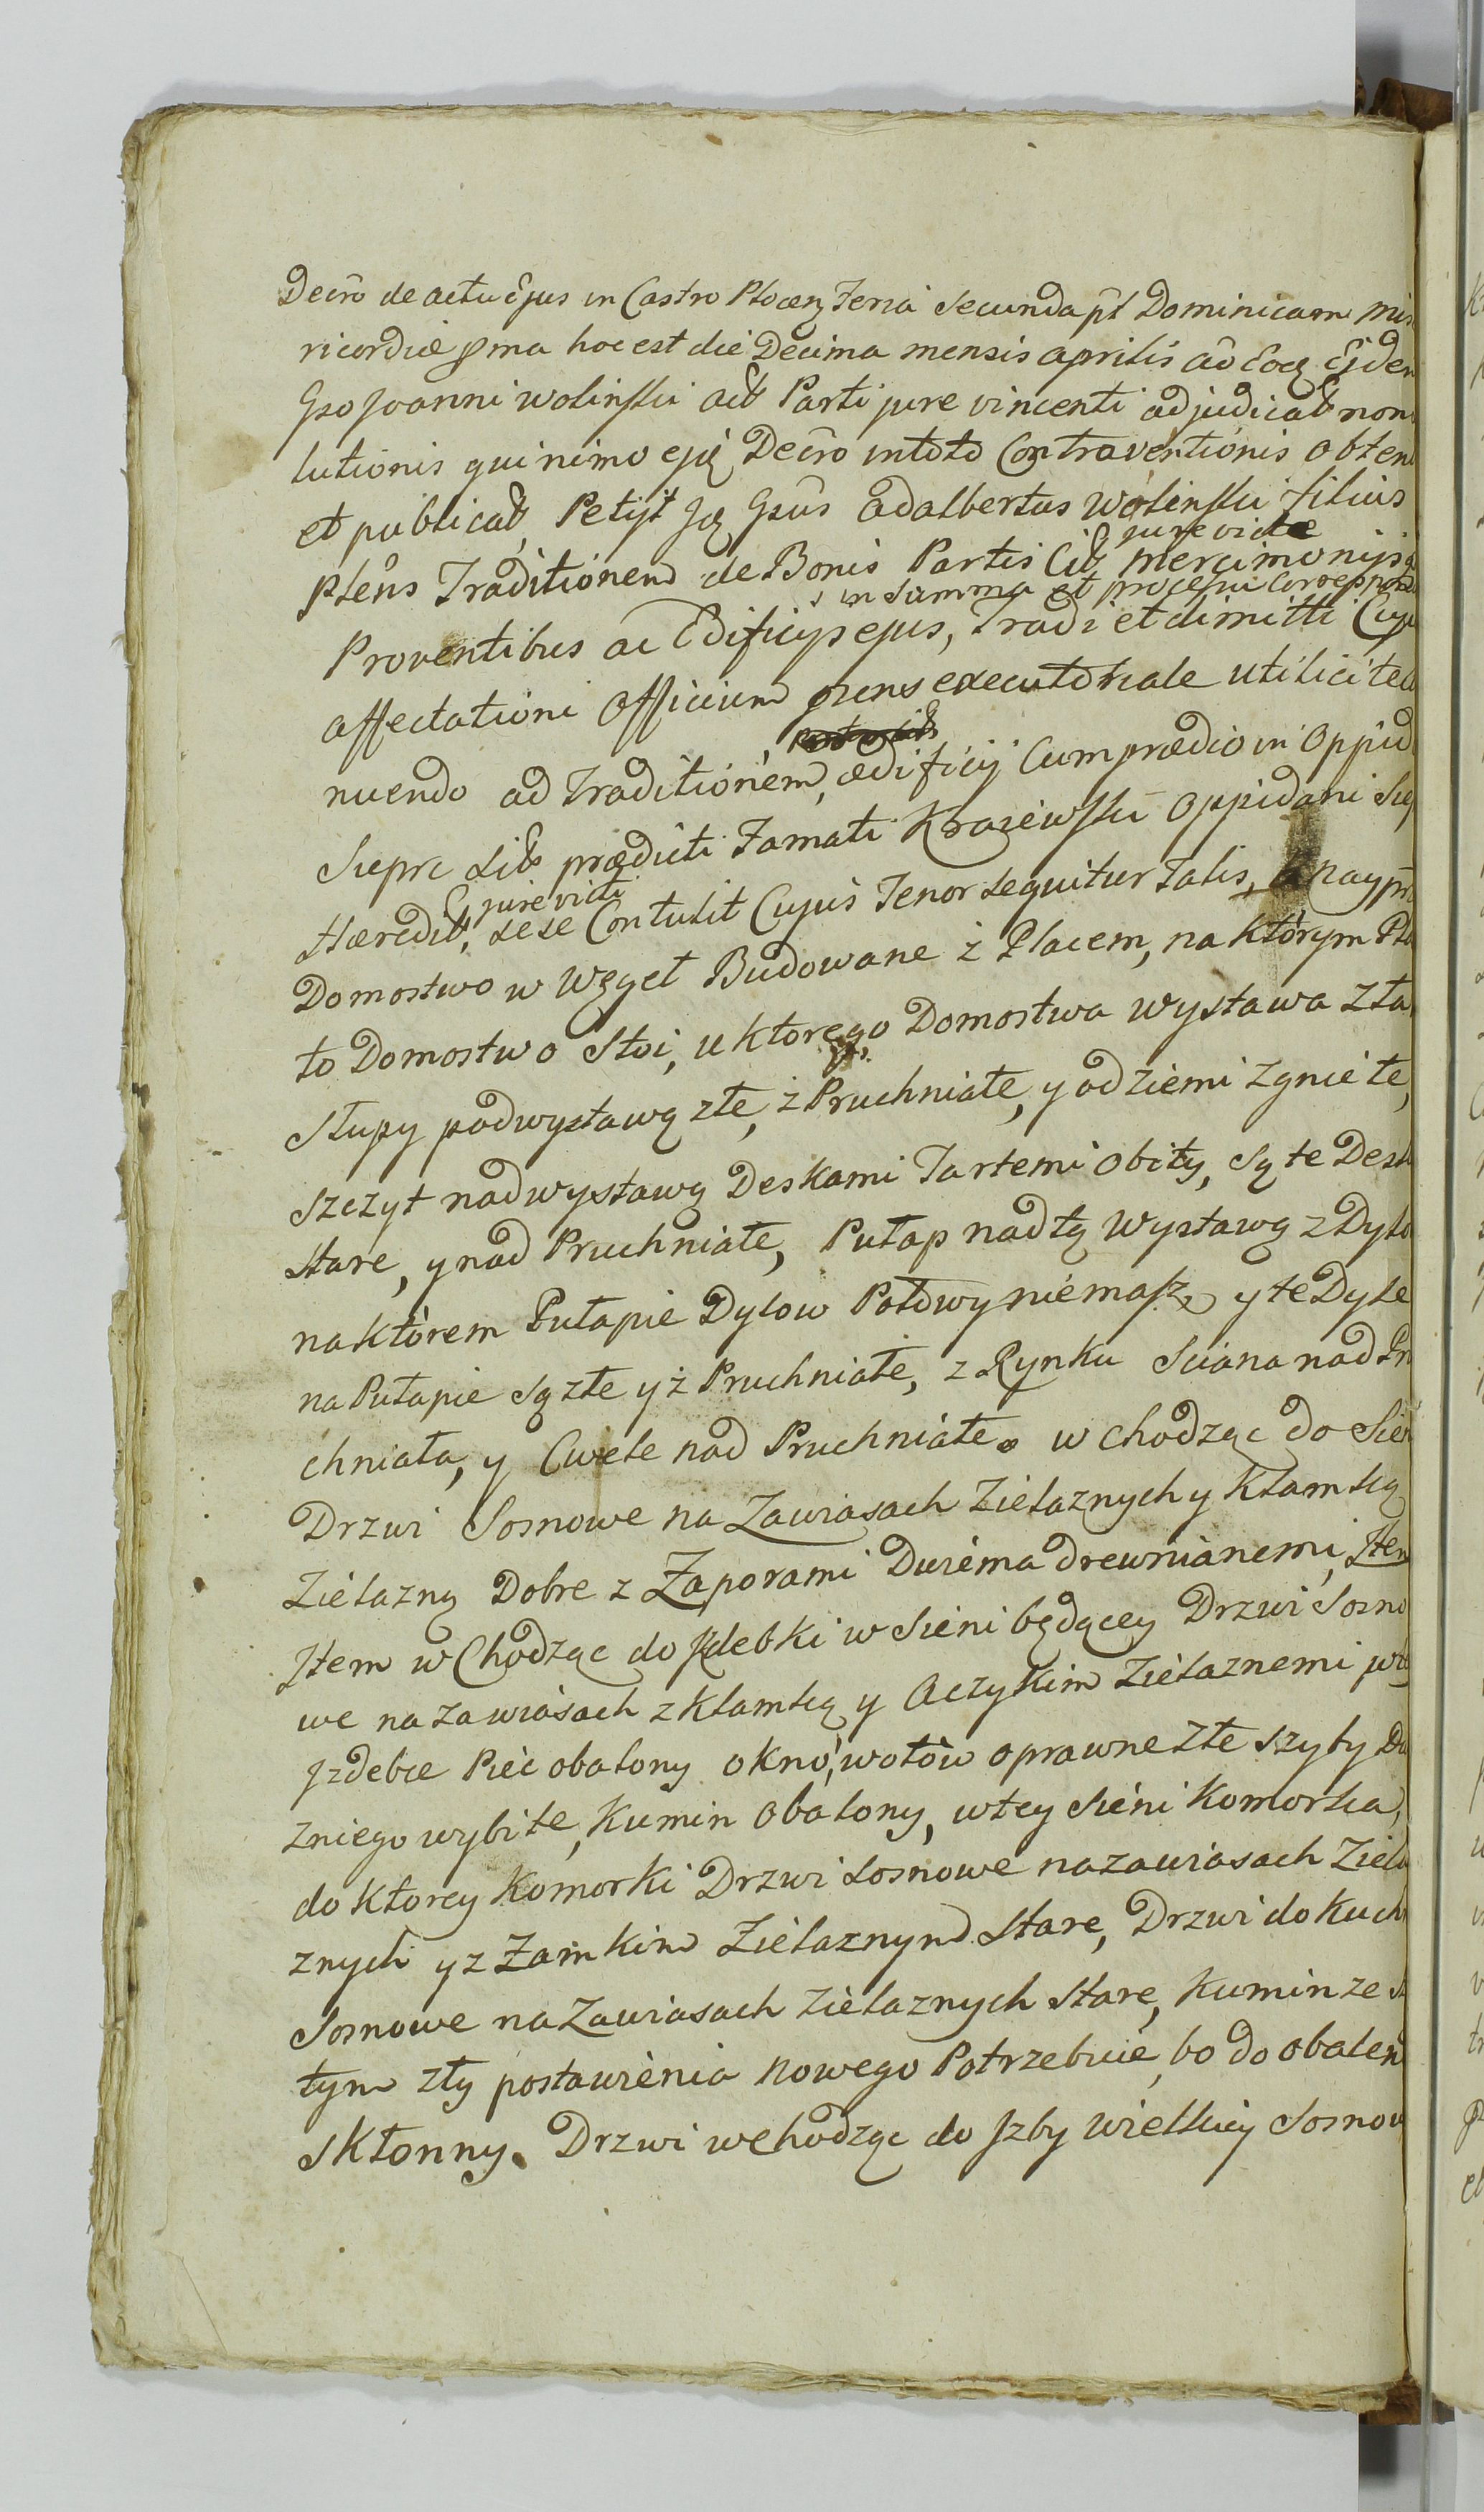 Decro de actu Ejus in Castro Plocen Feria Secunda pt Dominicam mis
ricordiæ pma hoc est die Decima mensis aprilis
Gso Joanni wolinski act Parti jure vincenti adjudicat non
lutionis quinimo Decro intoto Contraventionis obten
et publicat, Petyt Gsus Adalbertus Wolinski filius
jure victæ
Ptens Traditionem de Bonis Partis Cit mercimonijs
in Summa et processui Correspond
Proventibus ac Edificijs ejus, Tradi et dimitti Cuju
affectationi Officium prens executoriale utilicite
nuendo ad Traditionem, ædificij Cum prædio in Oppid
Siepre Sit prædicti Famati Krajewski Oppidani Siep
jure victi
Hæredit, sese Contulit Cujus Tenor sequitur Talis, naypr
Domostwo w Węgeł Budowane z Placem, na którym Pla
to Domostwo Stoi, u ktorego Domostwa wystawa zła
Słupy podwystawą złe, z Pruchniałe, y od ziemi Zgniełe,
Szczyt nadwystawą Deskami Tartemi Obity, są te Desk
Stare, y nad Pruchniałe, Pułap nad tą Wystawą z Dylo
na którem Pułapie Dylow Połowy niemasz, y te Dyle
na Pułapie są złe y z Pruchniałe, z Rynku Sciana nad Pru
chniała, y Cwele nad Pruchniałe. w chodząc do Sien
Drzwi Sosnowe na Zawiasach Zielaznych y Klamką
Zielazną Dobre z Zaporami Dwiema drewnianemi, Item
Item w Chodząc do Izdebki w Sieni będącey Drzwi Sosno
we na zawiasach z klamką y Aczykim Zielaznemi w
Izdebce Piec obalony okno, wołów oprawne złe szyby Dw
zniego wybite, Kumin Obalony, wtey Sieni Komorka,
do ktorey Komorki Drzwi Sosnowe nazawiasach Ziela
znych y z Zamkim Zielaznym Stare, Drzwi do Kuch
Sosnowe na Zawiasach zielaznych Stare, Kumin ze
tym zły postawienia Nowego Potrzebuie, bo do obalen
skłonny. Drzwi wchodząc do Izby wielkiey Sosnow